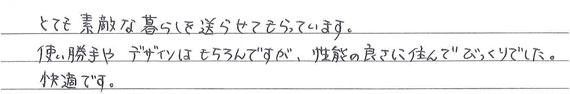 とても素敵な暮らしを送らせてもらっています。
使い勝手や デザインはもちろんですが、性能の良さに住んでびっくりでした。
快適です。